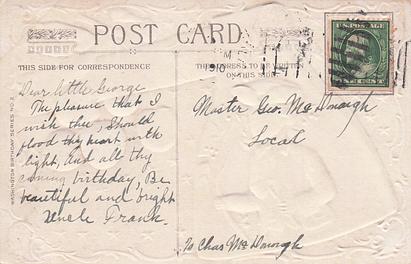 POST CARD
THIS SIDE FOR CORRESPONDENCE
THE ADDRESS TO BE WRITTEN
ON THIS SIDE
M
1910
U.S. POSTAGE
CENT
WASHINGTON BIRTHDAY SERIES NO. 2
Dear little George
The pleasure that I
wish thee, Should
flood thy heart with
light, And all thy
coming birthday, Be
beautiful and bright
Uncle Frank.
Master Geo. McDonough
Local
℅ Chas McDonough